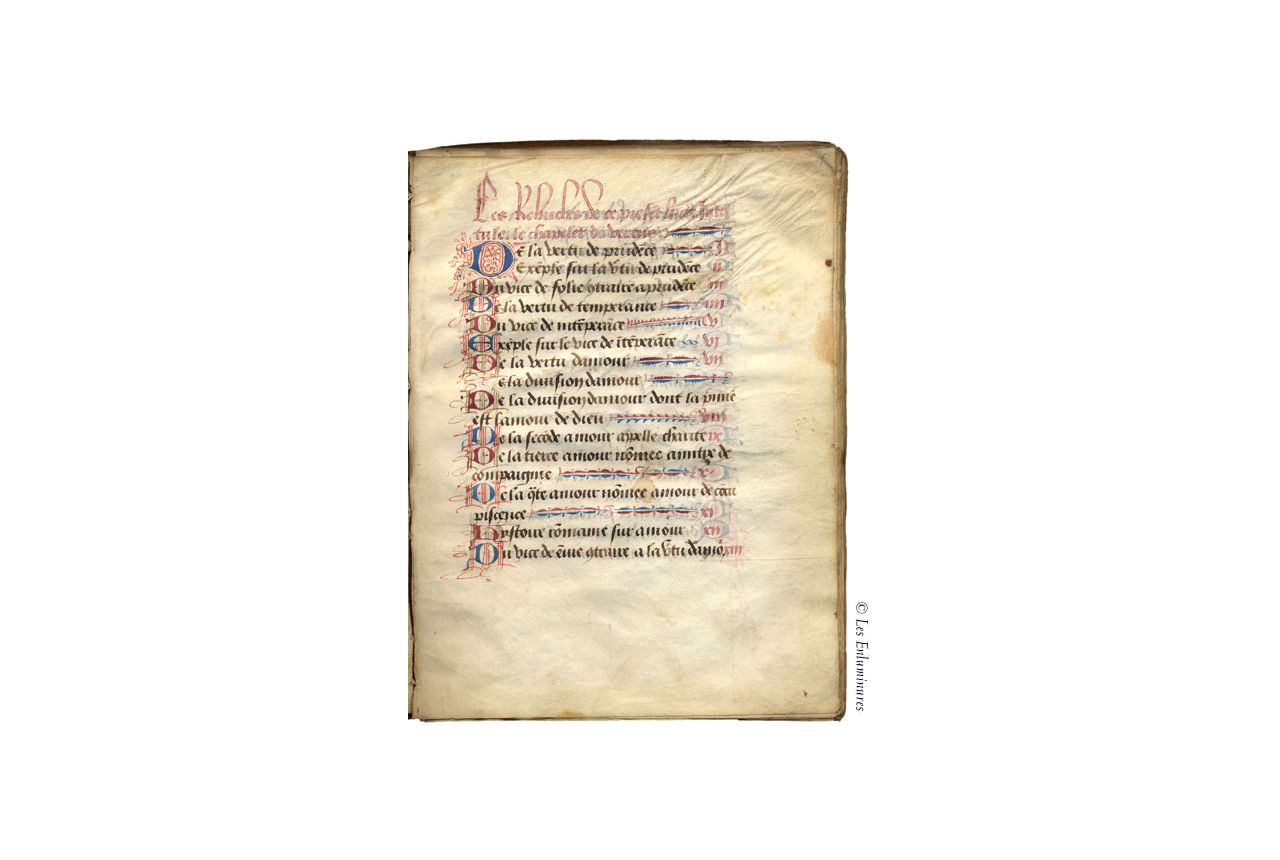 Les Rebriches de ce presēt livre īnti
tule le chapelet de vertus
De la vertu de prudēce I
Exēple sur la v̄tu de prudēce II
Du vice de folie ꝯtraire a prudēce III
De la vertu de temperance IIII
Du vice de intēperāce V
Exēple sur le vice de ītēperāce VI
De la vertu damour VII
De la division damour
De la division damour dont la p̄miē
est lamour de dieu VIII
De la secōde amour appelle charite IX
De la tierce amour nōmee amitie de
compaignie X
De la q̄te amour nōmee amour de cōcu
piscence XI
Hystoire rōmaine sur amour XII
Du vice de ēvie ꝯtraire a la v̄tu damo᷑ XIII
© Les Enluminures